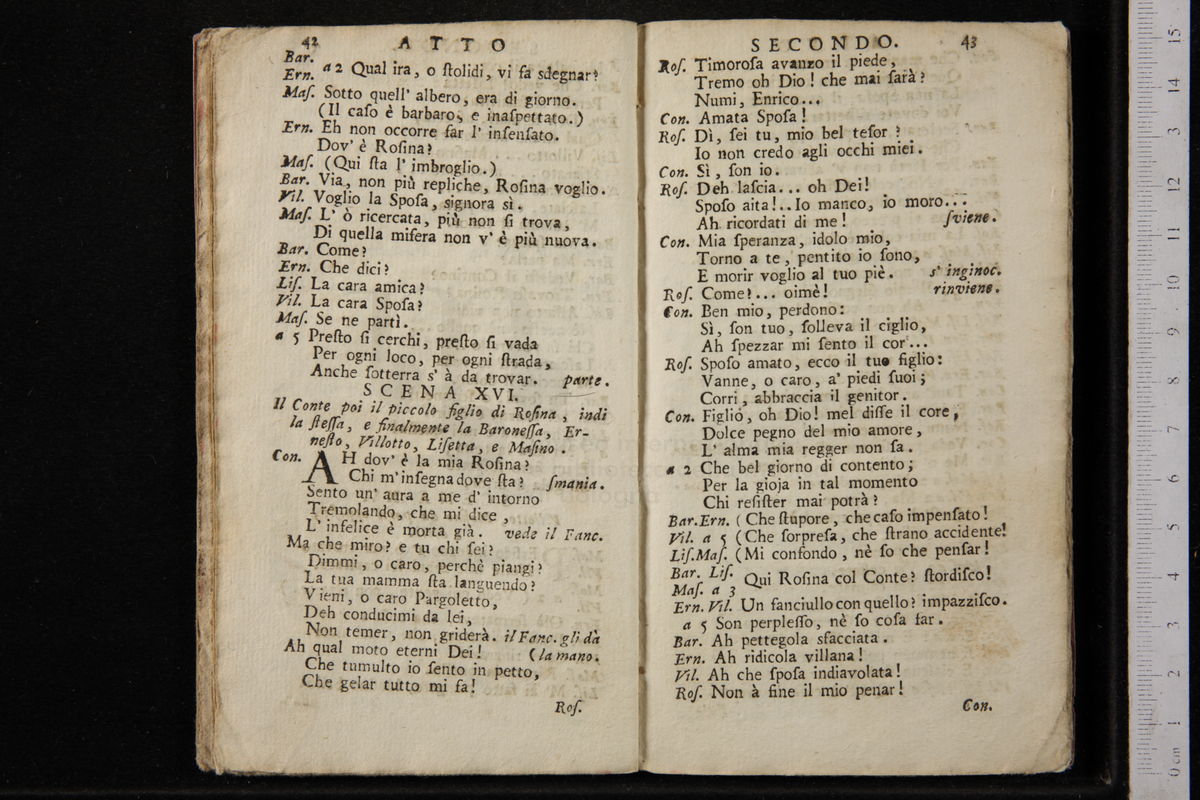 42 ATTO
Bar.
Ern. a 2 Qual ira, o ſtolidi, vi fa sdegnar?
Maſ. Sotto quell' albero, era di giorno.
(Il caſo è barbaro, e inaſpettato.)
Ern. Eh non occorre far l' inſenſato.
Dov' è Roſina?
Maſ. (Qui ſta l' imbroglio.)
Bar. Via, non più repliche, Roſina voglio.
Vil. Voglio la Spoſa, signora sì.
Maſ. L' ò ricercata, più non ſi trova,
Di quella miſera non v' è più nuova.
Bar. Come?
Ern. Che dici?
Liſ. La cara amica?
Vil. La cara Spoſa?
Maſ. Se ne partì.
a 5 Preſto ſi cerchi, preſto ſi vada
Per ogni loco, per ogni ſtrada,
Anche ſotterra s' à da trovar. parte.
SCENA XVI.
Il Conte poi il piccolo figlio di Roſina, indi
la ſteſſa, e finalmente la Baroneſſa, Er-
neſto, Villotto, Liſetta, e Maſino.
Con. AH dov' è la mia Roſina?
Chi m' inſegna dove ſta? ſmania.
Sento un' aura a me d' intorno
Tremolando, che mi dice,
L' infelice è morta già. vede il Fanc.
Ma che miro? e tu chi ſei?
Dimmi, o caro, perchè piangi?
La tua mamma ſta languendo?
Vieni, o caro Pargoletto,
Deh conducimi da lei,
Non temer, non griderà. il Fanc. gli dà
Ah qual moto eterni Dei! (la mano.
Che tumulto io ſento in petto,
Che gelar tutto mi fa!
Roſ.
SECONDO. 43
Roſ. Timoroſa avanzo il piede,
Tremo oh Dio! che mai ſarà?
Numi, Enrico...
Con. Amata Spoſa!
Roſ. Dì, ſei tu, mio bel teſor?
Io non credo agli occhi miei.
Con. Sì, ſon io.
Roſ. Deh laſcia... oh Dei!
Spoſo aita!..Io manco, io moro...
Ah ricordati di me! ſviene.
Con. Mia ſperanza, idolo mio,
Torno a te, pentito io ſono,
E morir voglio al tuo piè. s' inginoc.
Roſ. Come?... oimè! rinviene.
Con. Ben mio, perdono:
Sì, ſon tuo, ſolleva il ciglio,
Ah ſpezzar mi ſento il cor...
Roſ. Spoſo amato, ecco il tuo figlio:
Vanne, o caro, a' piedi ſuoi;
Corri, abbraccia il genitor.
Con. Figlio, oh Dio! mel diſſe il core,
Dolce pegno del mio amore,
L' alma mia regger non ſa.
a 2 Che bel giorno di contento;
Per la gioja in tal momento
Chi reſiſter mai potrà?
Bar. Ern. (Che ſtupore, che caſo impenſato!
Vil. a 5 (Che ſorpreſa, che ſtrano accidente!
Liſ. Maſ. (Mi confondo, nè ſo che penſar!
Bar. Liſ.
Maſ. a 3 Qui Roſina col Conte? ſtordiſco!
Ern. Vil. Un fanciullo con quello? impazziſco.
a 5 Son perpleſſo, nè ſo coſa far.
Bar. Ah pettegola sfacciata.
Ern. Ah ridicola villana!
Vil. Ah che ſpoſa indiavolata!
Roſ. Non à fine il mio penar!
Con.